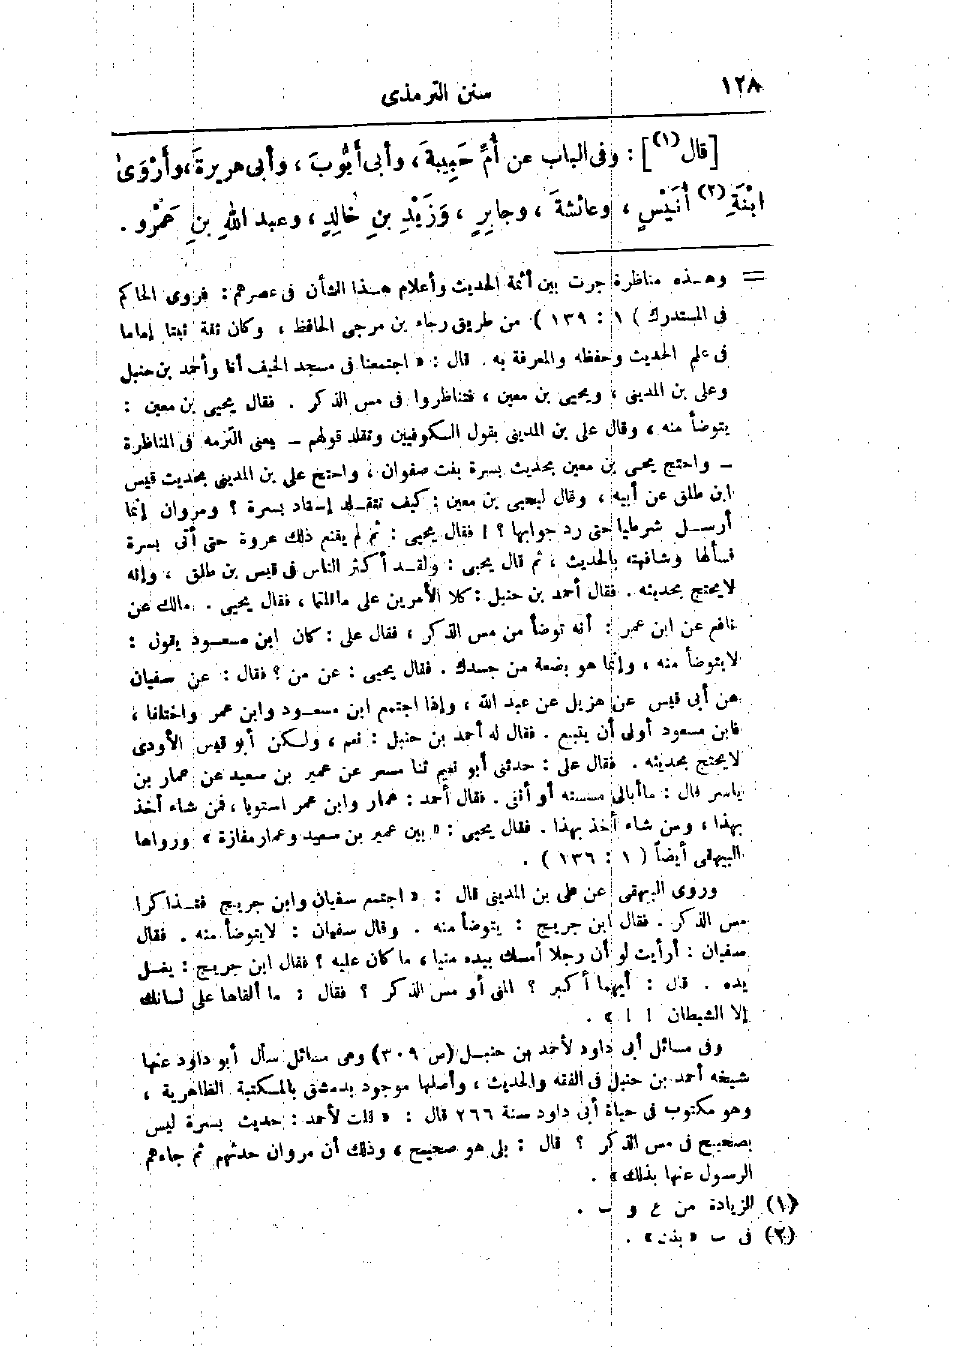 ١٢٨
سنن الترمذى
[قال (١)] : وفى الباب عن أُمِّ حَبِيبةَ ، وأبى أَيُّوبَ ، وأبى هريرةَ ، وأَرْوَىٰ
ابْنَةِ (٢) أُنَيْسٍ ، وعائشةَ ، وجابِرٍ ، وَزَيْدِ بنِ خَالِدٍ ، وعبد اللهِ بنِ عَمْرٍو .
= وهـذه مناظرة جرت بين أئمة الحديث وأعلام هـذا الشأن فى عصرهم : فروى الحاكم
فى المستدرك ( ١ : ١٣٩ ) من طريق رجاء بن مرجى الحافظ ، وكان ثقة ثبتا إماما
فى علم الحديث وحفظه والمعرفة به . قال : « اجتمعنا فى مسجد الخيف أنا وأحمد بن حنبل
وعلى بن المدينى ، ويحيى بن معين ، فتناظروا فى مس الذكر . فقال يحيى بن معين :
يتوضأ منه ، وقال على بن المدينى بقول الكوفيين وتقلد قولهم ــ يعنى التزمه فى المناظرة
ــ واحتج يحيى بن معين بحديث بسرة بنت صفوان ، واحتج على بن المدينى بحديث قيس
ابن طلق عن أبيه ، وقال ليحيى بن معين : كيف تتقـلد إسـناد بسرة ؟ ومروان إنما
أرسـل شرطيا حتى رد جوابها ؟ ! فقال يحيى : ثم لم يقنع ذلك عروة حتى أتى بسرة
فسألها وشافهته بالحديث ، ثم قال يحيى : ولقـد أكثر الناس فى قيس بن طلق ، وإنه
لايحتج بحديثه . فقال أحمد بن حنبل : كلا الأمرين على ماقلتما ، فقال يحيى . مالك عن
نافع عن ابن عمر : أنه توضأ من مس الذكر ، فقال على : كان ابن مسعـود يقول :
لايتوضأ منه ، وإنما هو بضعة من جسدك . فقال يحيى : عن من ؟ فقال : عن سفيان
عن أبى قيس عن هزيل عن عبد الله ، وإذا اجتمع ابن مسعـود وابن عمر واختلفا ،
فابن مسعود أولى أن يتبع . فقال له أحمد بن حنبل : نعم ، ولـكن أبو قيس الأودى
لايحتج بحديثه . فقال على : حدثنى أبو نعيم ثنا مسعر عن عمير بن سعيد عن عمار بن
ياسر قال : ماأبالى مسسته أو أنفى . فقال أحمد : عمار وابن عمر استويا ، فمن شاء أخذ
بهذا ، ومن شاء أخذ بهذا . فقال يحيى : « بين عمير بن سعيد وعمار مفازة » ورواها
البيهقى أيضاً ( ١ : ١٣٦ ) .
وروى البيهقى عن على بن المدينى قال : « اجتمع سفيان وابن جريج فتـذاكرا
مس الذكر . فقال ابن جريج : يتوضأ منه . وقال سفيان : لايتوضأ منه . فقال
سفيان : أرأيت لو أن رجلا أمسك بيده منيا ، ما كان عليه ؟ فقال ابن جريج : يغسل
يده . قال : أيهما أكبر ؟ المنى أو مس الذكر ؟ فقال : ما ألقاها على لسانك
إلا الشيطان ! ! » .
وفى مسائل أبى داود لأحمد بن حنبـل (ص ٣٠٩) وهى مسائل سأل أبو داود عنها
شيخه أحمد بن حنبل فى الفقه والحديث ، وأصلها موجود بدمشق بالمكتبة الظاهرية ،
وهو مكتوب فى حياة أبى داود سنة ٢٦٦ قال : « قلت لأحمد : حديث بسرة ليس
بصحيح فى مس الذكر ؟ قال : بلى هو صحيح ، وذلك أن مروان حدثهم ثم جاءهم
الرسول عنها بذلك » .
(١) الزيادة من ع و ب .
(٢) فى ب « بنت » .